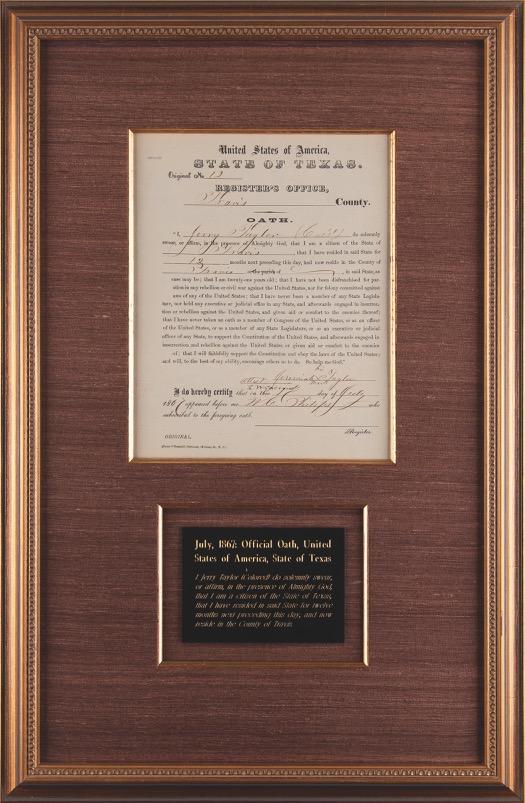 United States of America,
STATE OF TEXAS.
Original No 13
REGISTER'S OFFICE,
Travis County.
OATH.
"I, Jerry Taylor do solemnly
swear, or affirm, in the presence of Almighty God, that I am a citizen of the State of
, that I have resided in said State for
12 months next preceding this day, and now reside in the County of
Travis or the parish of , in said State, as
case may be; that I am twenty-one years old; that I have not been disfranchised for par-
ation in any rebellion or civil war against the United States, nor for felony committed against
aws of any of the United States; that I have never been a member of any State Legisla-
ture, nor held any executive or judicial office in any State, and afterwards engaged in insurrec-
tion or rebellion against the United States, and given aid or comfort to the enemies thereof;
that I have never taken an oath as a member of Congress of the United States, or as an officer
of the United States, or as a member of any State Legislature, or as an executive or judicial
officer of any State, to support the Constitution of the United States, and afterwards engaged in
insurrection and rebellion against the United States, or given aid or comfort to the enemies
of; that I will faithfully support the Constitution and obey the laws of the United States;
and will, to the best of my ability, encourage others so to do. So help me God."
Jeremiah Taylor
I do hereby certify that on this day of July
1867 appeared before me who
subscribed to the foregoing oath.
Register
ORIGINAL.
July, 1867: Official Oath, United
States of America, State of Texas
I Jerry Taylor (Colored) do solemnly swear,
or affirm, in the presence of Almighty God,
that I am a citizen of the State of Texas,
that I have resided in said State for twelve
months next preceding this day, and now
reside in the County of Travis